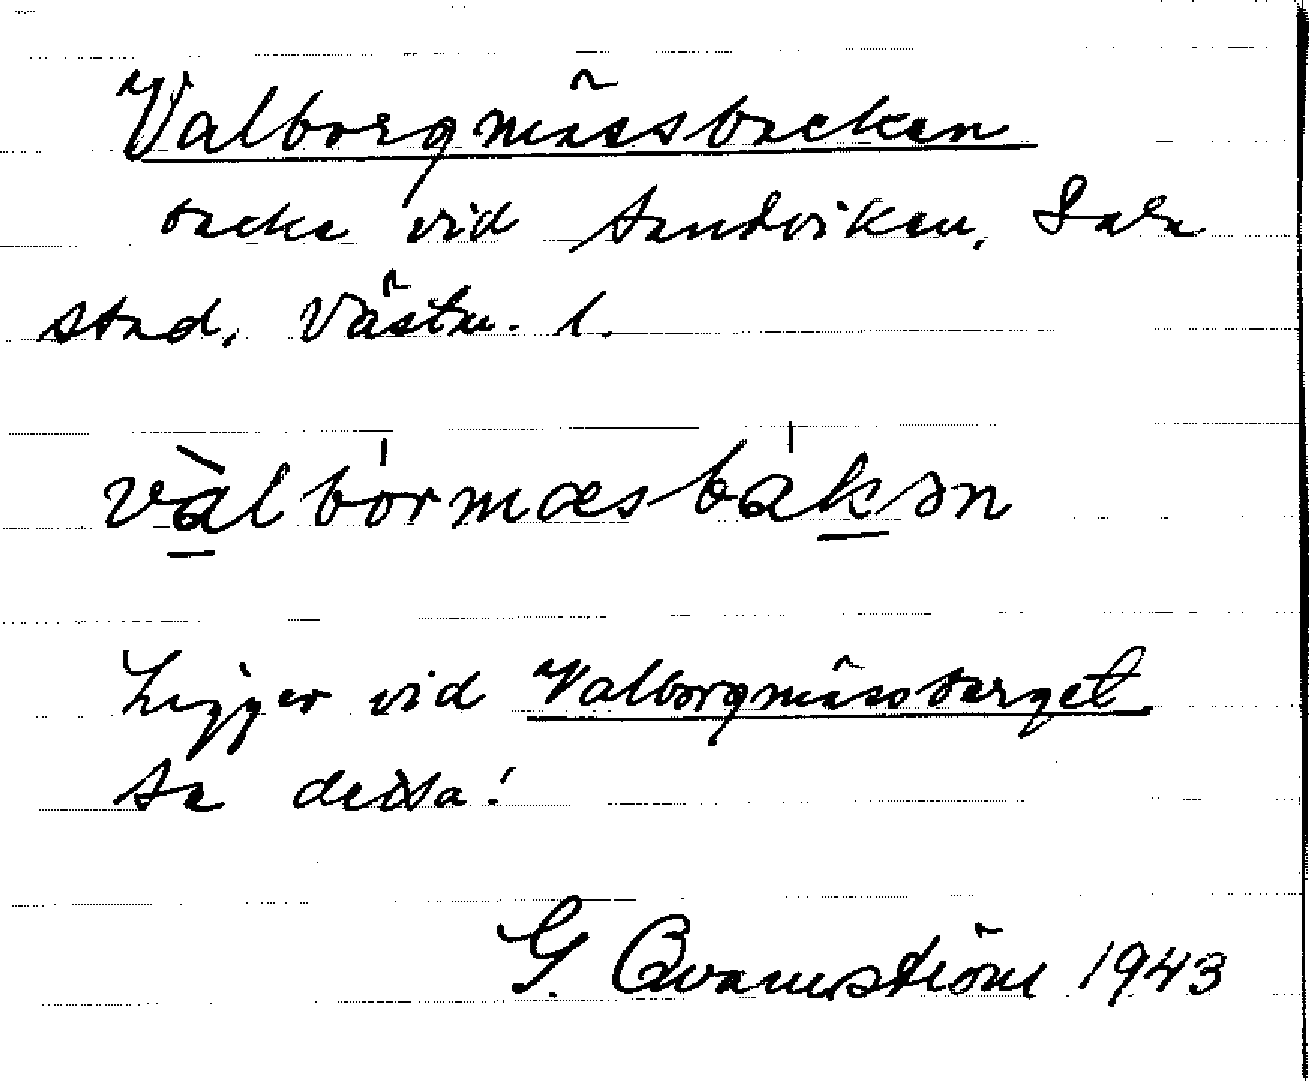 Valborgmässbacken
backe vid Sandviken, Sala
stad, Västm. l.
và̱lbórmæsbáḵən
Ligger vid Valborgmässberget
Se detta!
G. Qvarnström 1943